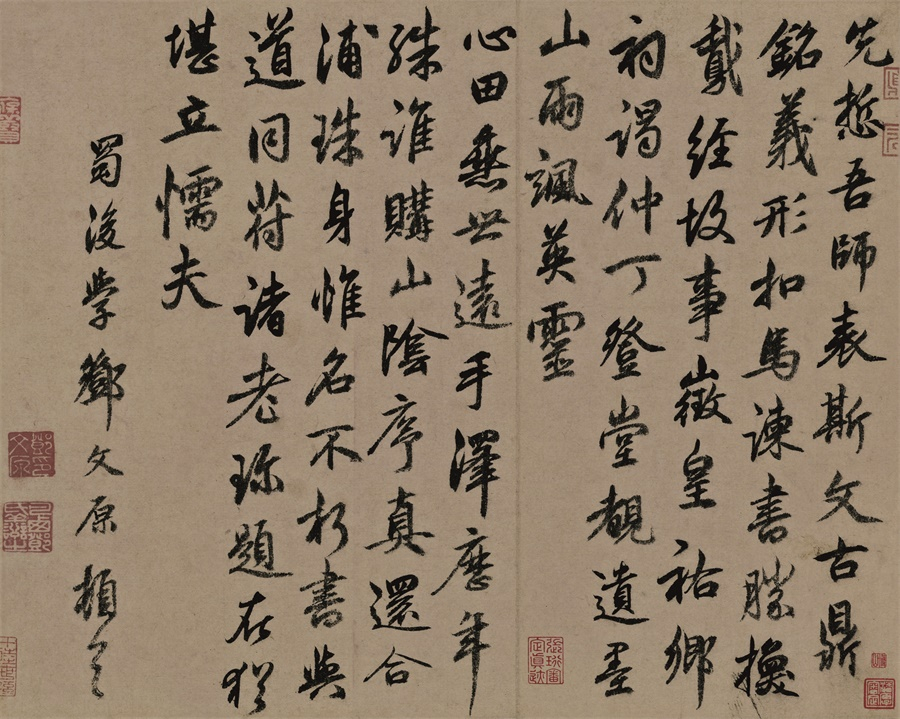 先悊吾師表斯文古鼎
銘義形扣馬諫書勝換
鵞經故事徵皇祐鄉
祠謁仲丁登堂覩遺墨
山雨颯英靈
心田垂世遠手澤歷年
殊誰購山陰序真還合
浦珠身惟名不朽書與
道同符諸老珎題在猶
堪立懦夫
蜀後学鄧文原頓首